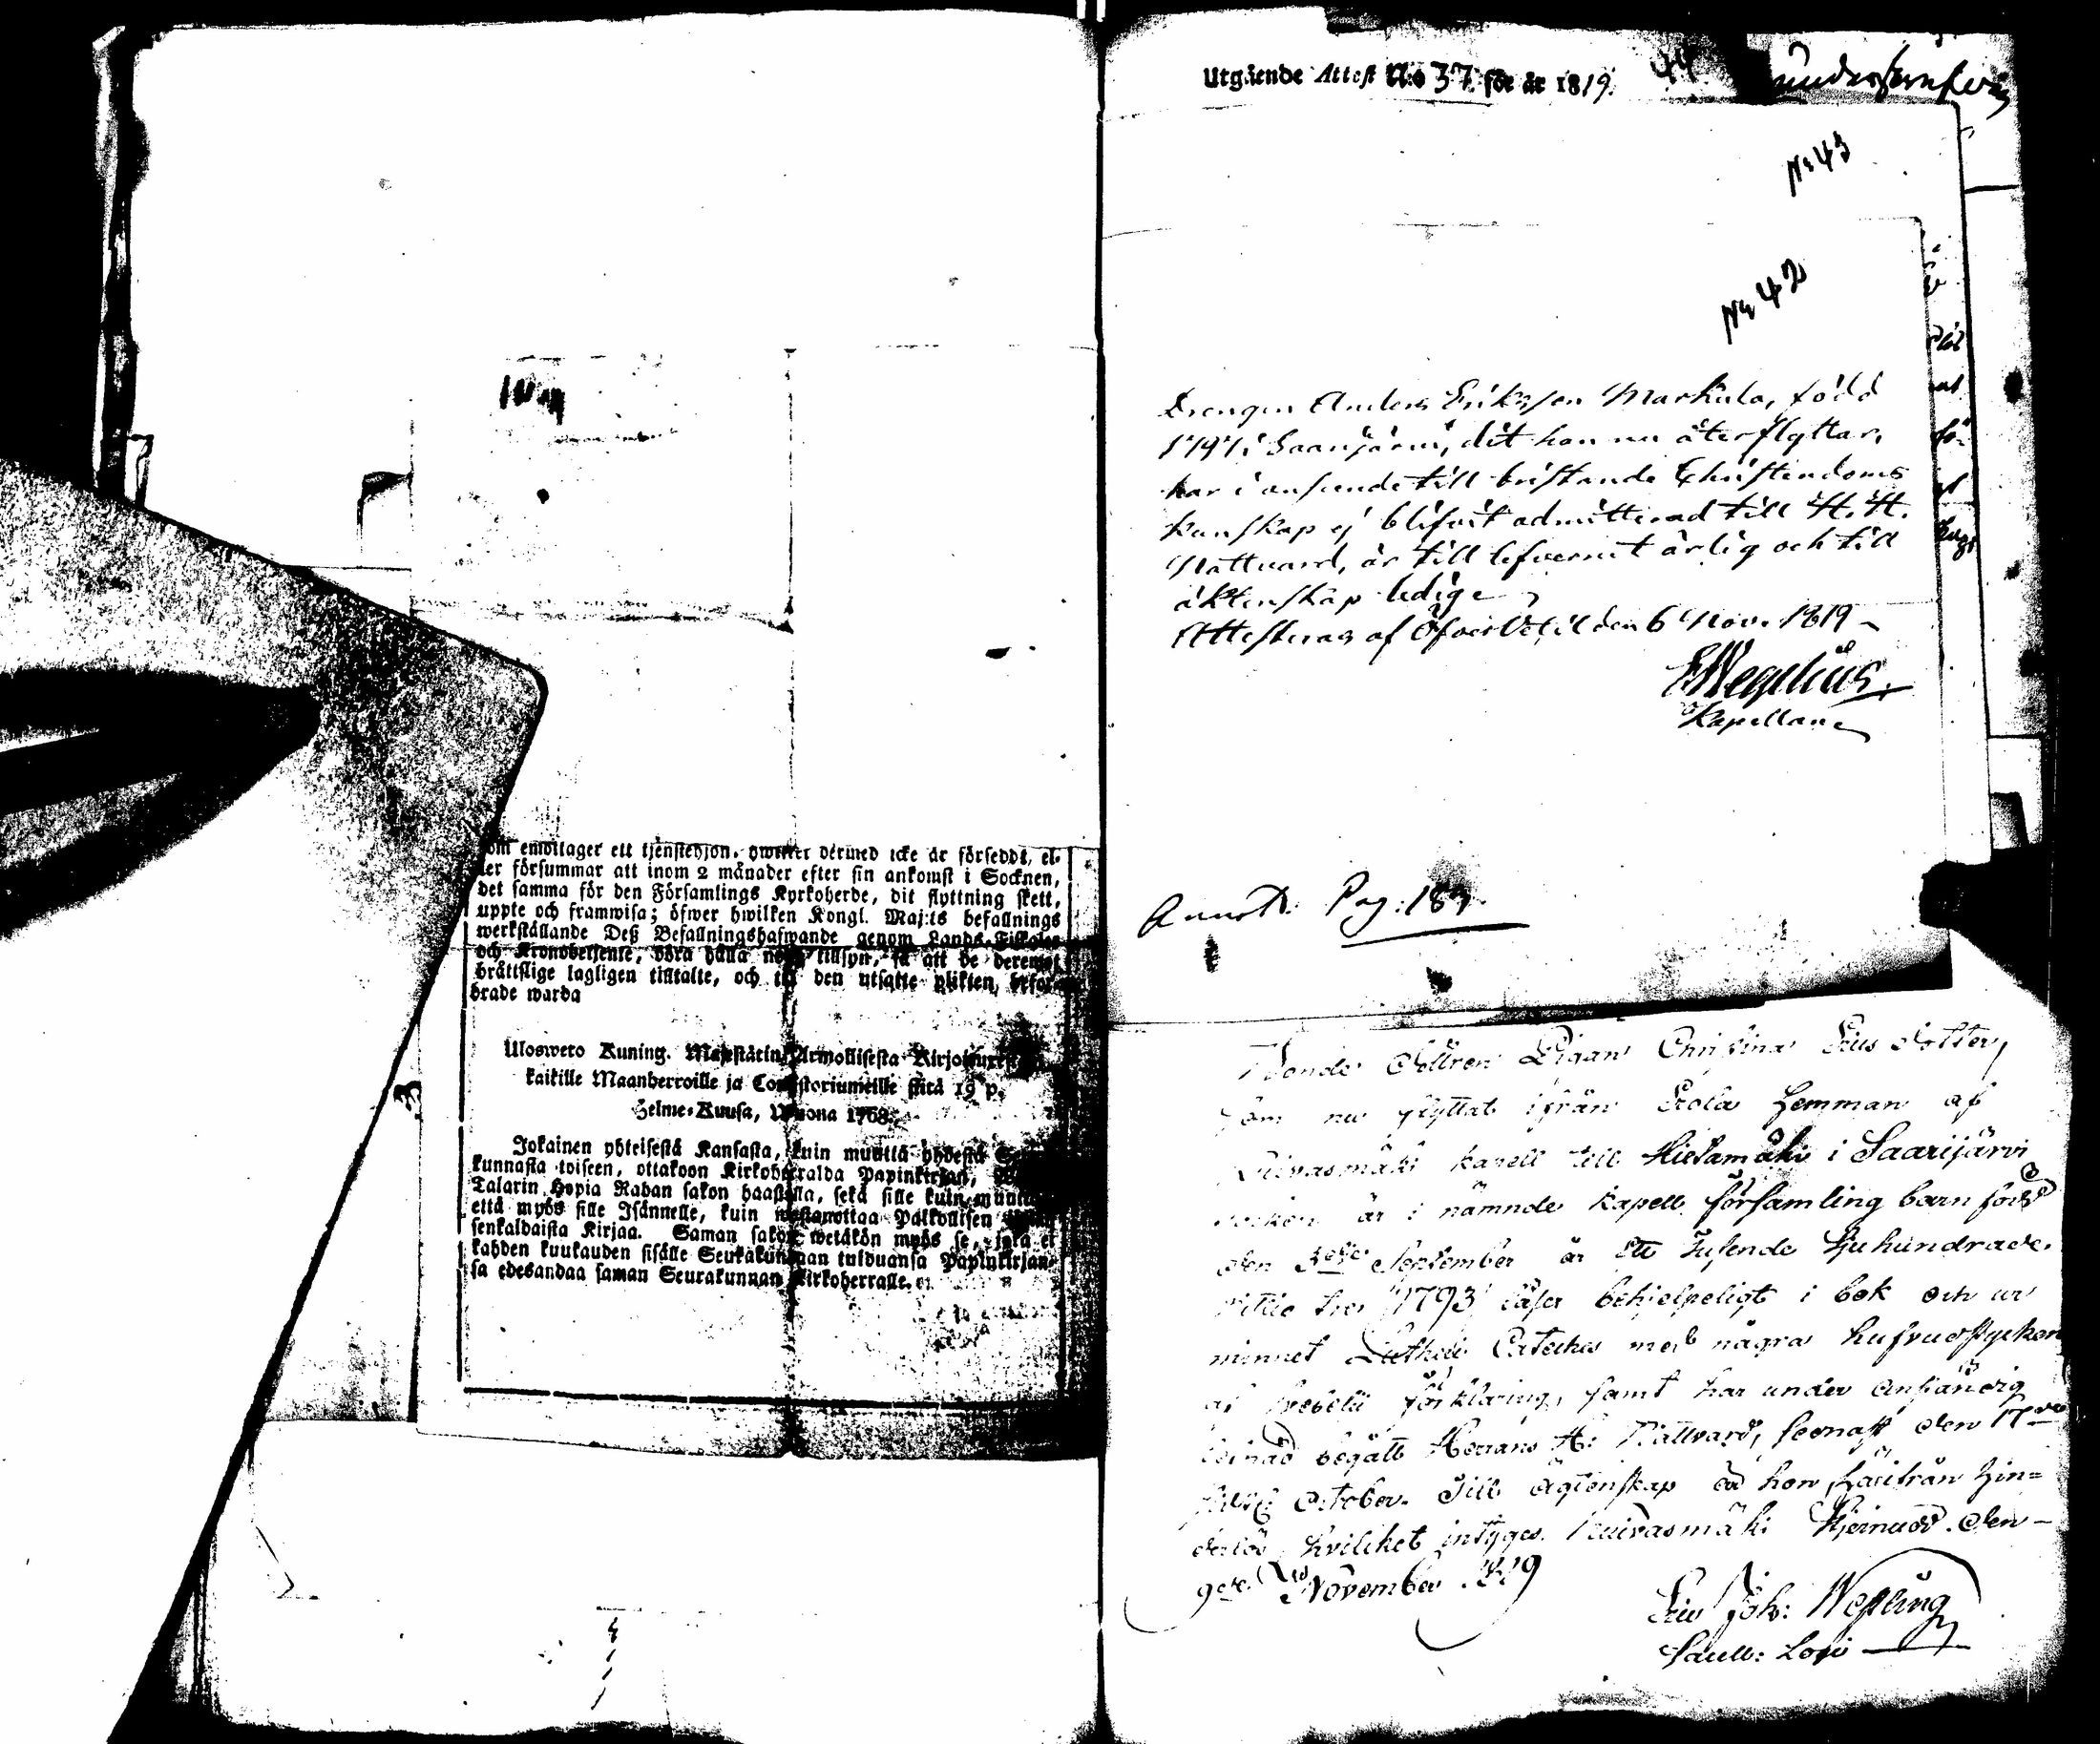 om emottager ett tjenstehjon, hwilket dermed icke är försedd, el-
ler försummar att inom 2 månader efter sin ankomst i Socknen,
det samma för den Församlings Kyrkoherde, dit flyttning skett,
uppte och framwisa; öfwer hwilken Kongl. Maj:ts befallnings
werkställande Deß Befallningshafwande genom Lands-Fiskaler
och Kronobetjente, böra hålla noga tillsyn, få att de deremot
bråttslige lagligen tilltalte, och till den utsatte plikten befor-
drade warda
Ulosweto Kuning. Majestätin Armollisesta Kirjoituxesta
kaikille Maanherroille ja Consistoriumeille siitä 19 p.
Helme-Kuusa, Wuonna 1768.
Jokainen yhteisestä Kansasta, kuin muuttä yhdestä Seu-
kunnasta toiseen, ottakoon Kirkoherralda Papinkirjan,
Talarin Hopia Rahan sakon haastolla, sekä sille kuin muutta
että myös sille Isännelle, kuin wastanottaa Palkollisen
senkaldaista Kirjaa. Saman sakon wetäkön myös se, joka ei
kahden kuukauden sisälle Seurakunnaan tulduansa Papinkirjan-
sa edesandaa saman Seurakunnan Kirkoherralle.
Utgående Attest N:o 37. för år 1819.
44
No 43
No 42
Drengen Anders Eriksson Markula, född
1797 i Saarijärvi, dit han nu återflyttar,
har i anseende till bristande Christendoms
kunskap ej blifvit admitterad till H. H.
Nattvard, är till lefvernet ärlig och till
äktenskap ledig
Attesteras af Öfvervetil den 6 Nov. 1819
E Wegelius
Kapellan
Annot: Pag: 183.
Bonde Dottren Pigan Christina Dotter,
som nu flyttat ifrån hemman af
Leivasmäki kapell till Hietamäki i Saarijärvi
socken är i nämnde kapell församling barn född
den 3die September år ett tusende sjuhundrade
nittio tre 1793 läser behjelpeligt i bok och ur
minnet Lutheri Cateches med några hufvudstycken
af Svebelii förklaring, samt har under anständig
lefnad begått Herrans H: Nattvard, senast den 17de
October. Till ägtenskap är hon härifrån hin-
derlös, hvilcket intyges. Leivasmäki den
9de November 1819
Joh: Wesling
Sacell: